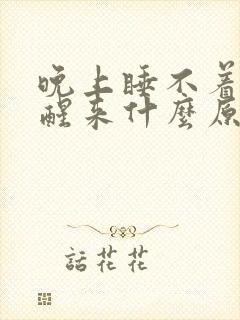 晚上睡不着
醒来什麼原
話花花